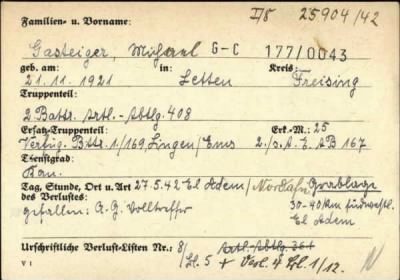 I/8 25904/42
Familien- u. Vorname:
Gasteiger, Michael G-C 177/0043
geb. am: in: Kreis:
21.11.1921 Letten Freising
Truppenteil:
2 Battr. Artl.-Abtlg. 408
Ersatz-Truppenteil: Erk.-M.: 25
Verfüg. Bttr. 1./169, Lingen/Ems 2./s.A.E.AB 167
Dienstgrad:
Kan.
Tag, Stunde, Ort u. Art 27.5.42 El Adem/Nordafr. Grablage
des Verlustes: 30-40 km südwestl.
gefallen: A.G. Volltreffer El Adem
Urschriftliche Verlust-Listen Nr.: 8/ Artl.-Abtlg. 364
Bl. 5 + Verl. 4 Bl. 1/12.
V 1